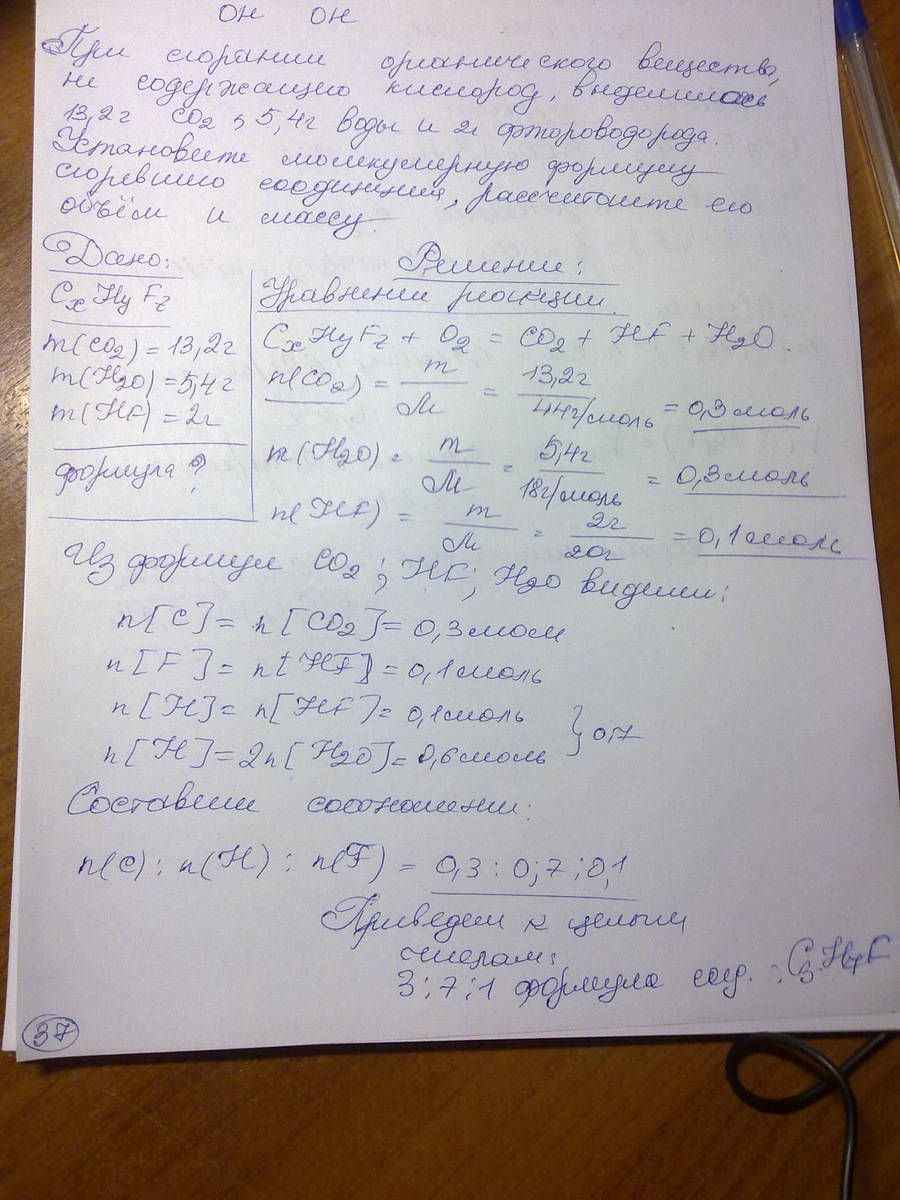 OH OH
При сгорании органического вещества,
не содержащего кислород, выделилось
13,2г CO2, 5,4г воды и 2г фтороводорода.
Установите молекулярную формулу
сгоревшего соединения, рассчитайте его
объём и массу.
Дано:
CxHyFz
m(CO2) = 13,2г
m(H2O) = 5,4г
m(HF) = 2г
формула ?
Решение:
Уравнение реакции.
CxHyFz + O2 = CO2 + HF + H2O.
n(CO2) = m/M = 13,2г/44г/моль = 0,3моль
n(H2O) = m/M = 5,4г/18г/моль = 0,3моль
n(HF) = m/M = 2г/20г = 0,1моль
Из формул CO2; HF; H2O видим:
n[C] = n[CO2] = 0,3моль
n[F] = n[HF] = 0,1моль
n[H] = n[HF] = 0,1моль
n[H] = 2n[H2O] = 0,6моль } 0,7
Составим соотношение:
n(C) : n(H) : n(F) = 0,3 : 0,7 : 0,1
Приведем к целым
числам:
3:7:1 формула соед.: C3H7F
37